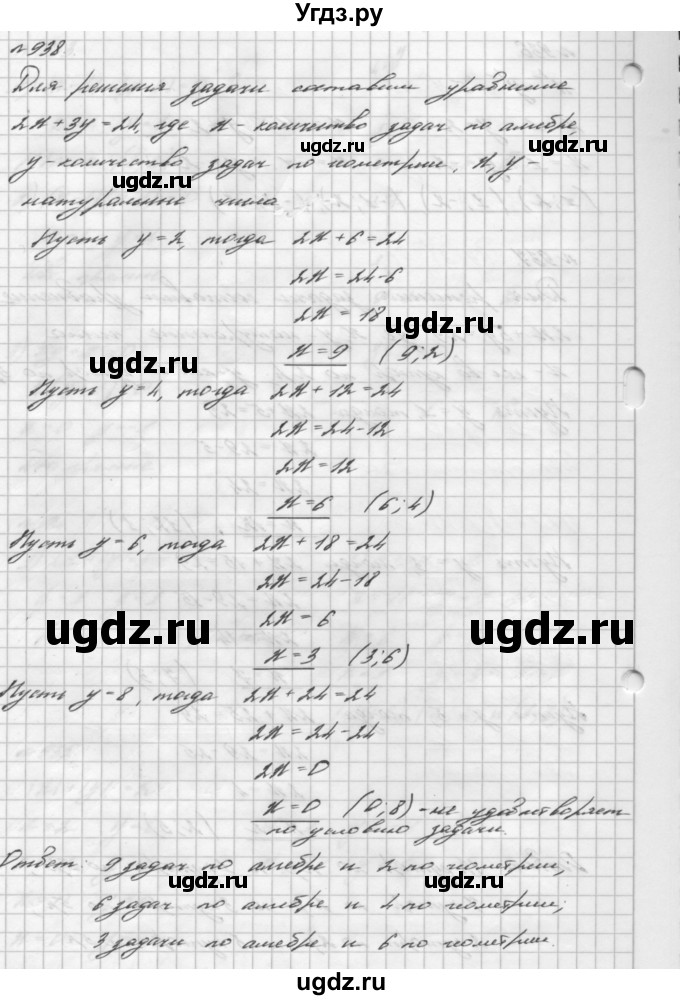 Гиугдз.ру
№938.
Для решения задачи составим уравнение
2x+3y=24, где x - количество задач по алгебре,
y - количество задач по геометрии, x, y -
ugdz.ru ugdz.ru
натуральные числа.
Пусть y=2, тогда 2x+6=24
2x=24-6
2x=18
ugdz.ru
x=9 (9;2)
ugdz.ru
Пусть y=4, тогда 2x+12=24
2x=24-12
2x=12
x=6 (6;4)
Пусть y=6, тогда 2x+18=24
2x=24-18
2x=6
ugdz.ru ugdz.ru
x=3 (3;6)
Пусть y=8, тогда 2x+24=24
2x=24-24
2x=0
x=0 (0;8) - не удовлетворяет
по условию задачи.
Ответ: 9 задач по алгебре и 2 по геометрии;
ugdz.ru ugdz.ru
6 задач по алгебре и 4 по геометрии;
3 задачи по алгебре и 6 по геометрии.
ugdz.ru